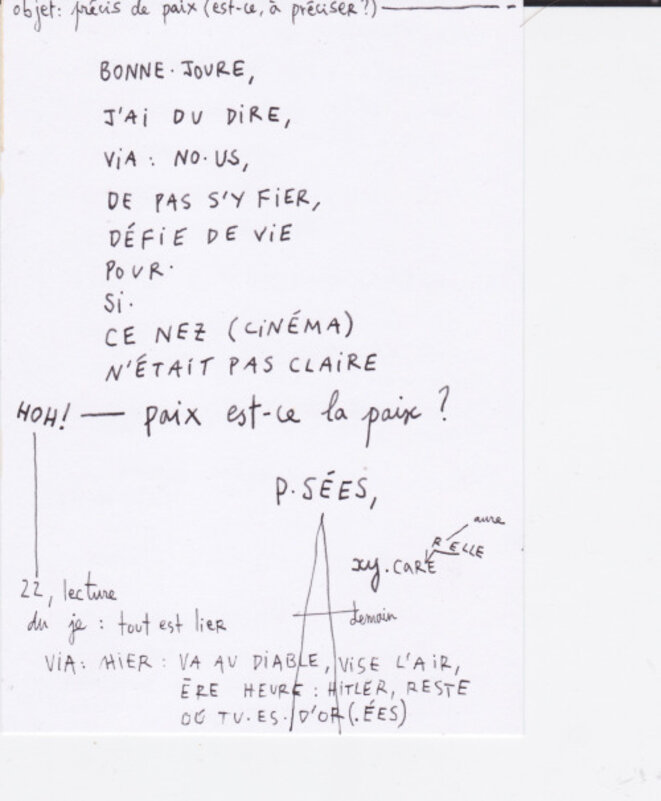 objet: précis de paix (est-ce, à préciser?)
BONNE·JOURE,
J'AI DU DIRE,
VIA : NO·US,
DE PAS S'Y FIER,
DÉFIE DE VIE
POUR·
SI·
CE NEZ (CINÉMA)
N'ÉTAIT PAS CLAIRE
HOH! — paix est-ce la paix ?
P·SÉES,
aure
RELLE
xy.CARE
22, lecture
demain
du je : tout est lier
VIA: HIER : VA AU DIABLE, VISE L'AIR,
ÈRE HEURE : HITLER, RESTE
OÙ TU·ES· D'OR(.ÉES)